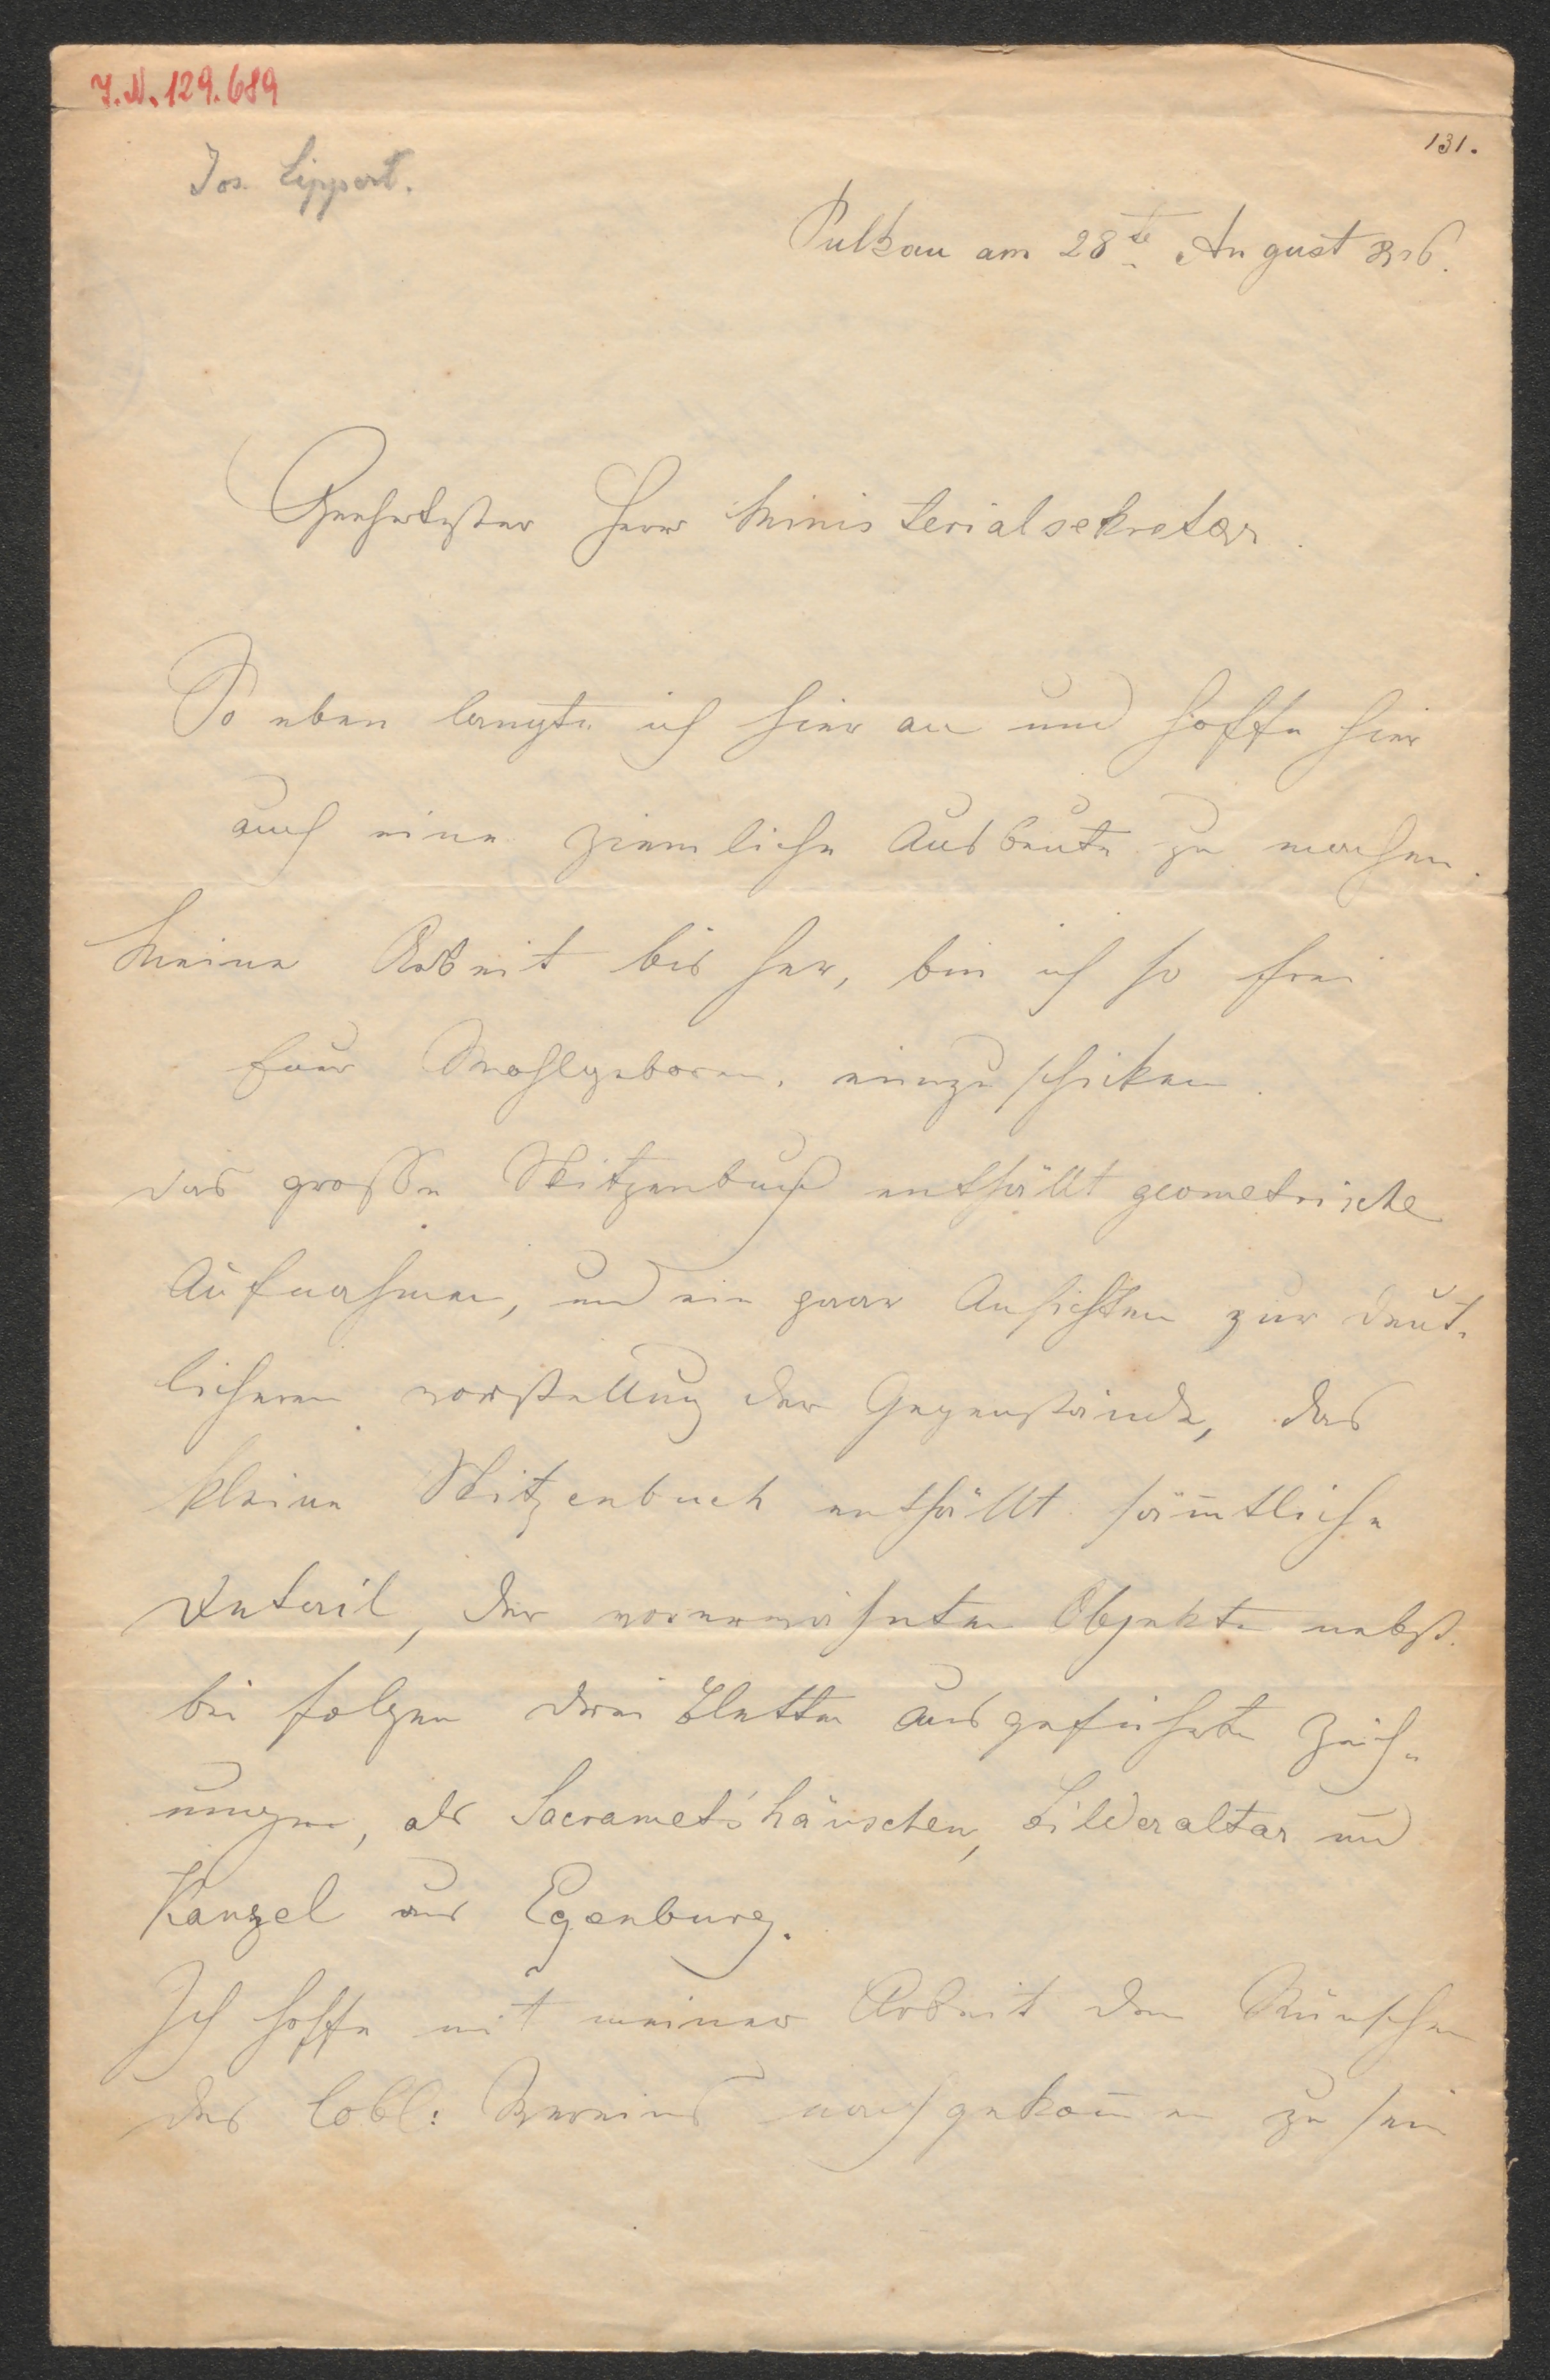 I.N. 129.689
131.
Jos. Lippert.
Pulkau am 28te August
Geehrtester Herr Ministerialsekretär.
So eben langte ich hier an und hoffe hier
auch eine ziemliche Ausbeute zu machen.
Meine Arbeit bis her, bin ich so frei
Euer Wohlgeboren, einzuschiken.
das große Skitzenbuch enthällt geometrische
Aufnahmen, und ein paar Ansichten zur deut-
licheren vorstellung der Gegenstände, das
kleine Skitzenbuch enthällt sämtliche
Detail, der vorerwähnten Objekte nebst
bei folgen drei Bletter ausgeführte Zeich-
nungen, als Sacramets'häuschen, Bilderaltar und
Kanzel aus Egenburg.
Ich hoffe mit meiner Arbeit den Wünschen
des löbl: Vereins nachgekom̅en zu sein